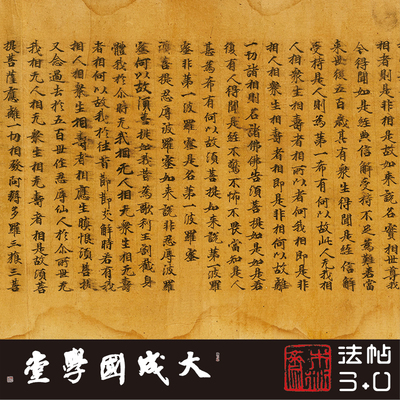 相者則是名實相世尊我
今得聞如是經典信解受持不足為難若當
來世後五百歲其有眾生得聞是經信解
受持是人則為第一希有何以故此人无我相
人相眾生相壽者相所以者何我相即是非
相人相眾生相壽者相即是非相何以故離
一切諸相則名諸佛佛告須菩提如是如是若
復有人得聞是經不驚不怖不畏當知是人
甚為希有何以故須菩提如來說第一波羅
蜜非第一波羅蜜是名第一波羅蜜
須菩提忍辱波羅蜜如來說非忍辱波羅
蜜何以故須菩提如我昔為歌利王割截身
體我於尒時无我相无人相无眾生相无壽
者相何以故我於往昔節節支解時若有我
相人相眾生相壽者相應生瞋恨須菩提
又念過去於五百世作忍辱仙人於尒所世无
我相无人相无眾生相无壽者相是故須菩
提菩薩應離一切相發阿耨多羅三藐三菩
大成國學堂
法帖
3.0